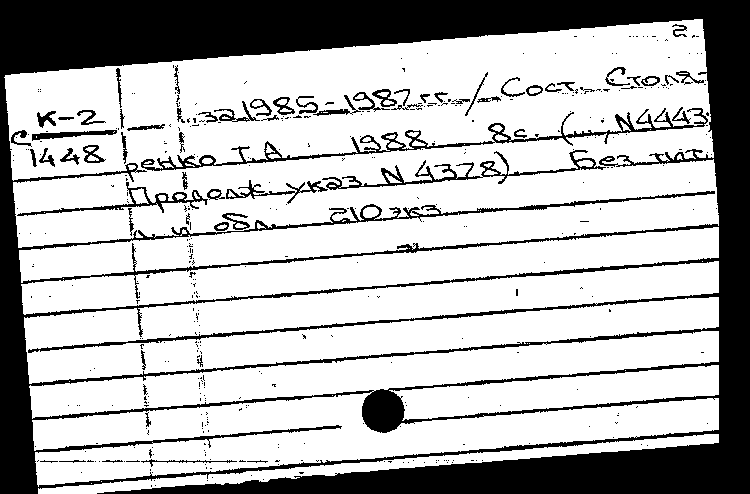 2
К-2
С 1448
..за 1985-1987 гг. / Сост. Столя-
ренко Т.А. 1988. 8с. (...; N4443.
Продолж. указ. N 4378). Без тит.
л. и обл. 210 экз.